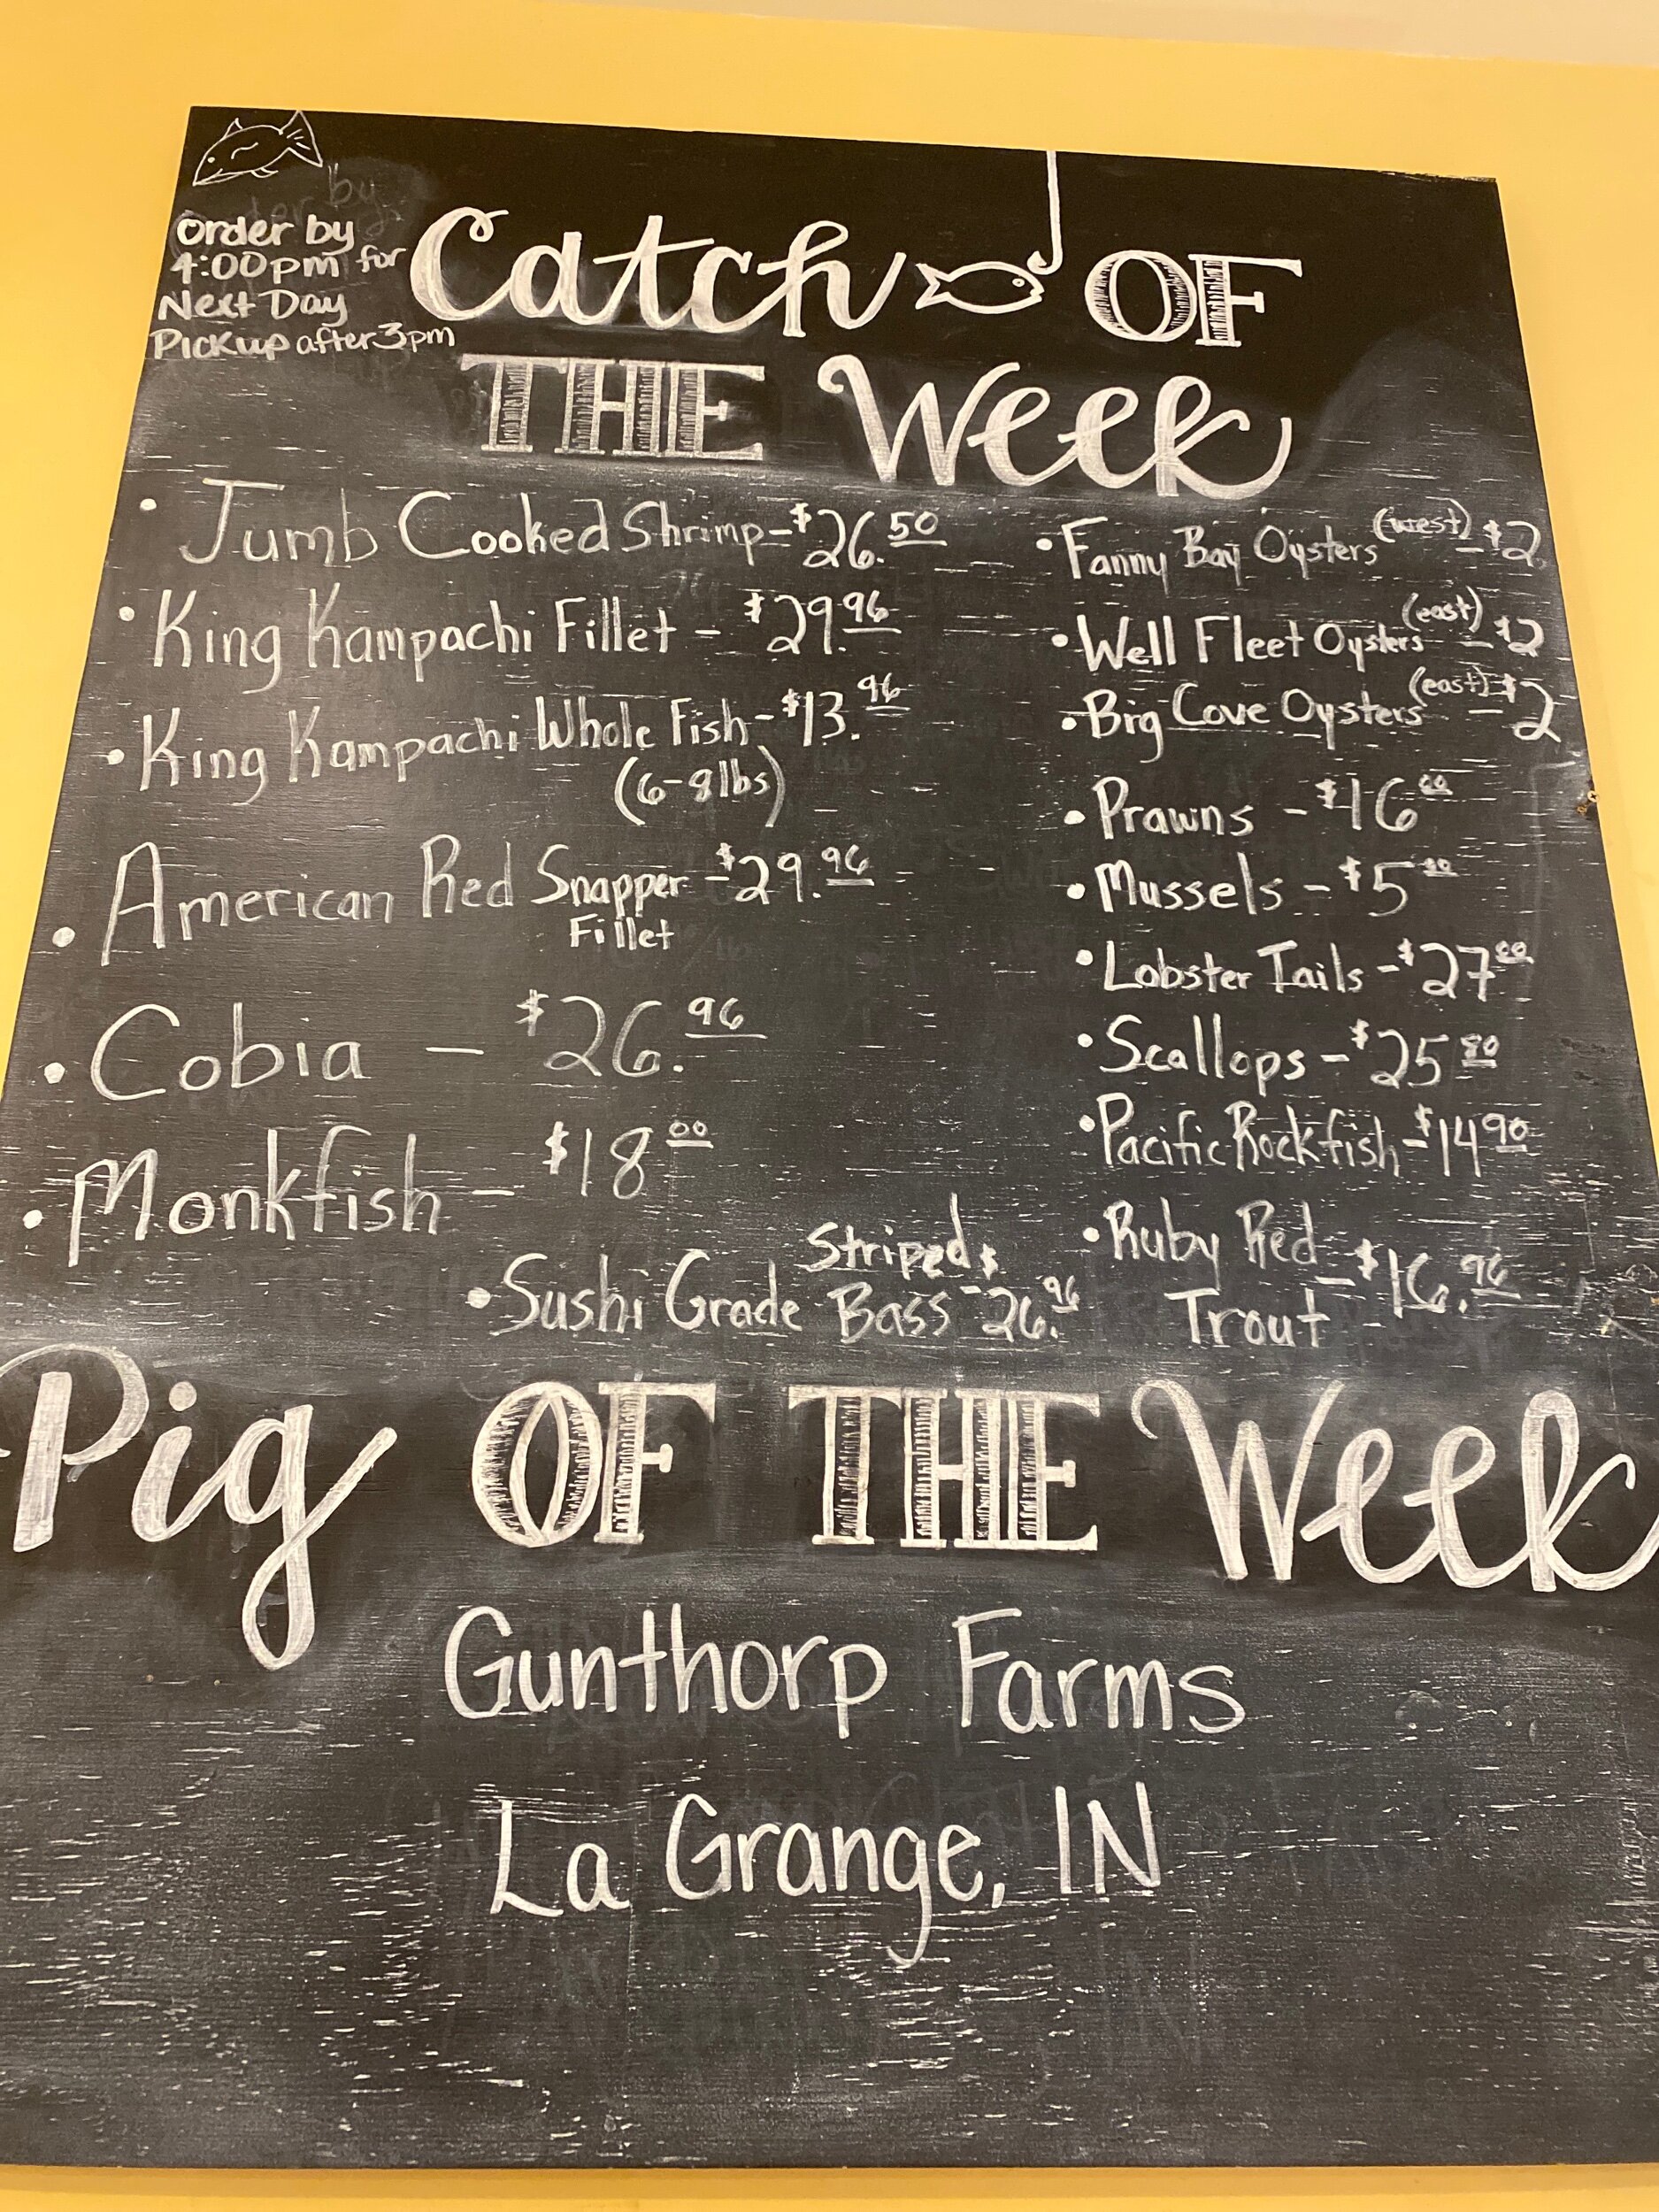 Order by
4:00pm for
Next Day
Pickup after 3pm
Catch OF
THE Week
• Jumb Cooked Shrimp - $26.50
• King Kampachi Fillet - $29.96
• King Kampachi Whole Fish - $13.96
(6-8lbs)
• American Red Snapper - $29.96
Fillet
• Cobia - $26.96
• Monkfish - $18 00
• Sushi Grade Striped
Bass - $26.96
• Fanny Bay Oysters (west) - $2
• Well Fleet Oysters (east) - $2
• Big Cove Oysters (east) - $2
• Prawns - $16 00
• Mussels - $5 00
• Lobster Tails - $27 00
• Scallops - $25 80
• Pacific Rockfish - $14 90
• Ruby Red
Trout - $16.96
Pig OF THE Week
Gunthorp Farms
La Grange, IN